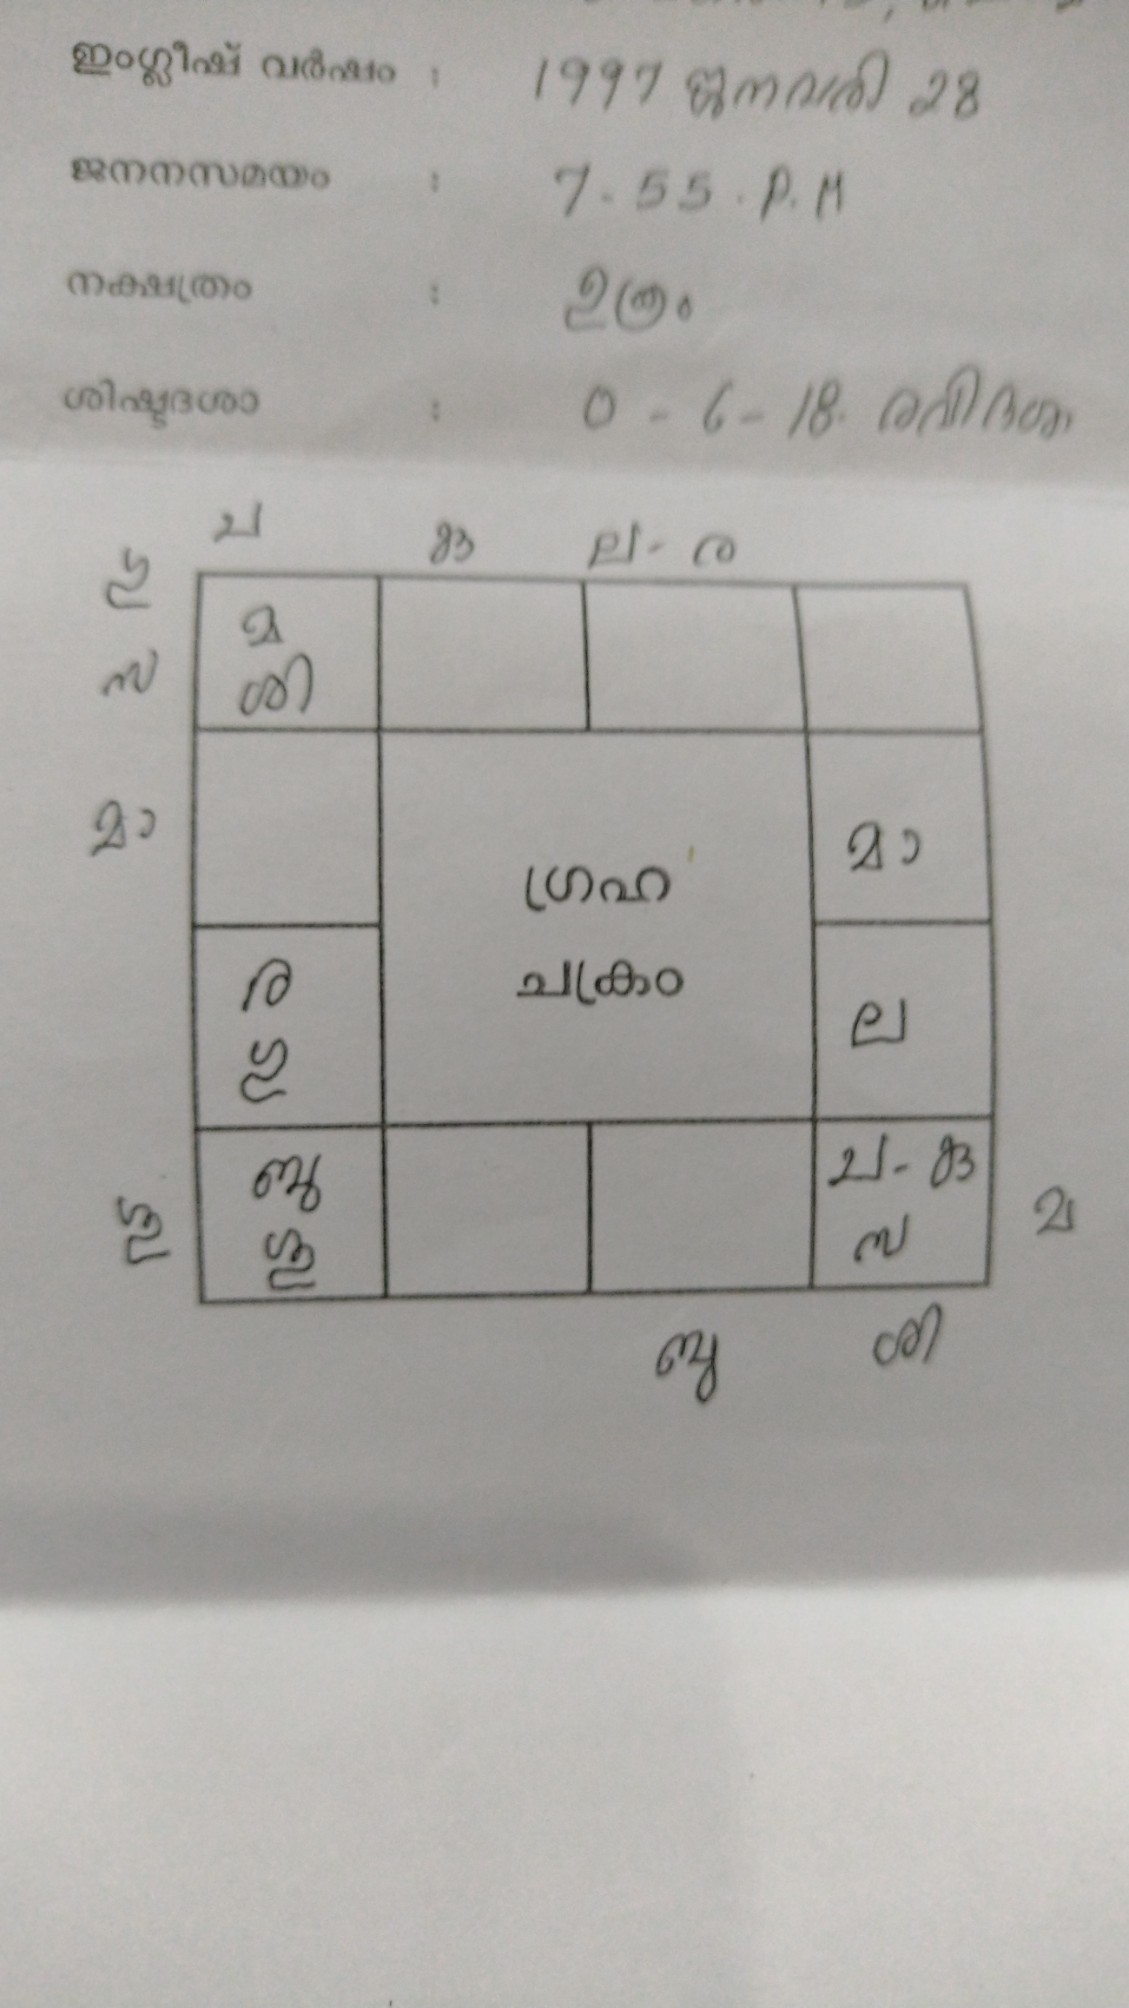 ഇംഗ്ലീഷ് വർഷം : 1997 ജനവരി 28
ജനനസമയം : 7.55.P.M
നക്ഷത്രം : ഉത്രം
ശിഷ്ടദശാ : 0-6-18. രവിദശ
ച ഭൃ ല-ര
ഗു
മ
ശി
സ
മാ
മാ
ഗ്രഹ
ചക്രം
ര
ഗു
ല
ബു
ശു
ച-ഭൃ
സ
ശു
മ
ബു ശി